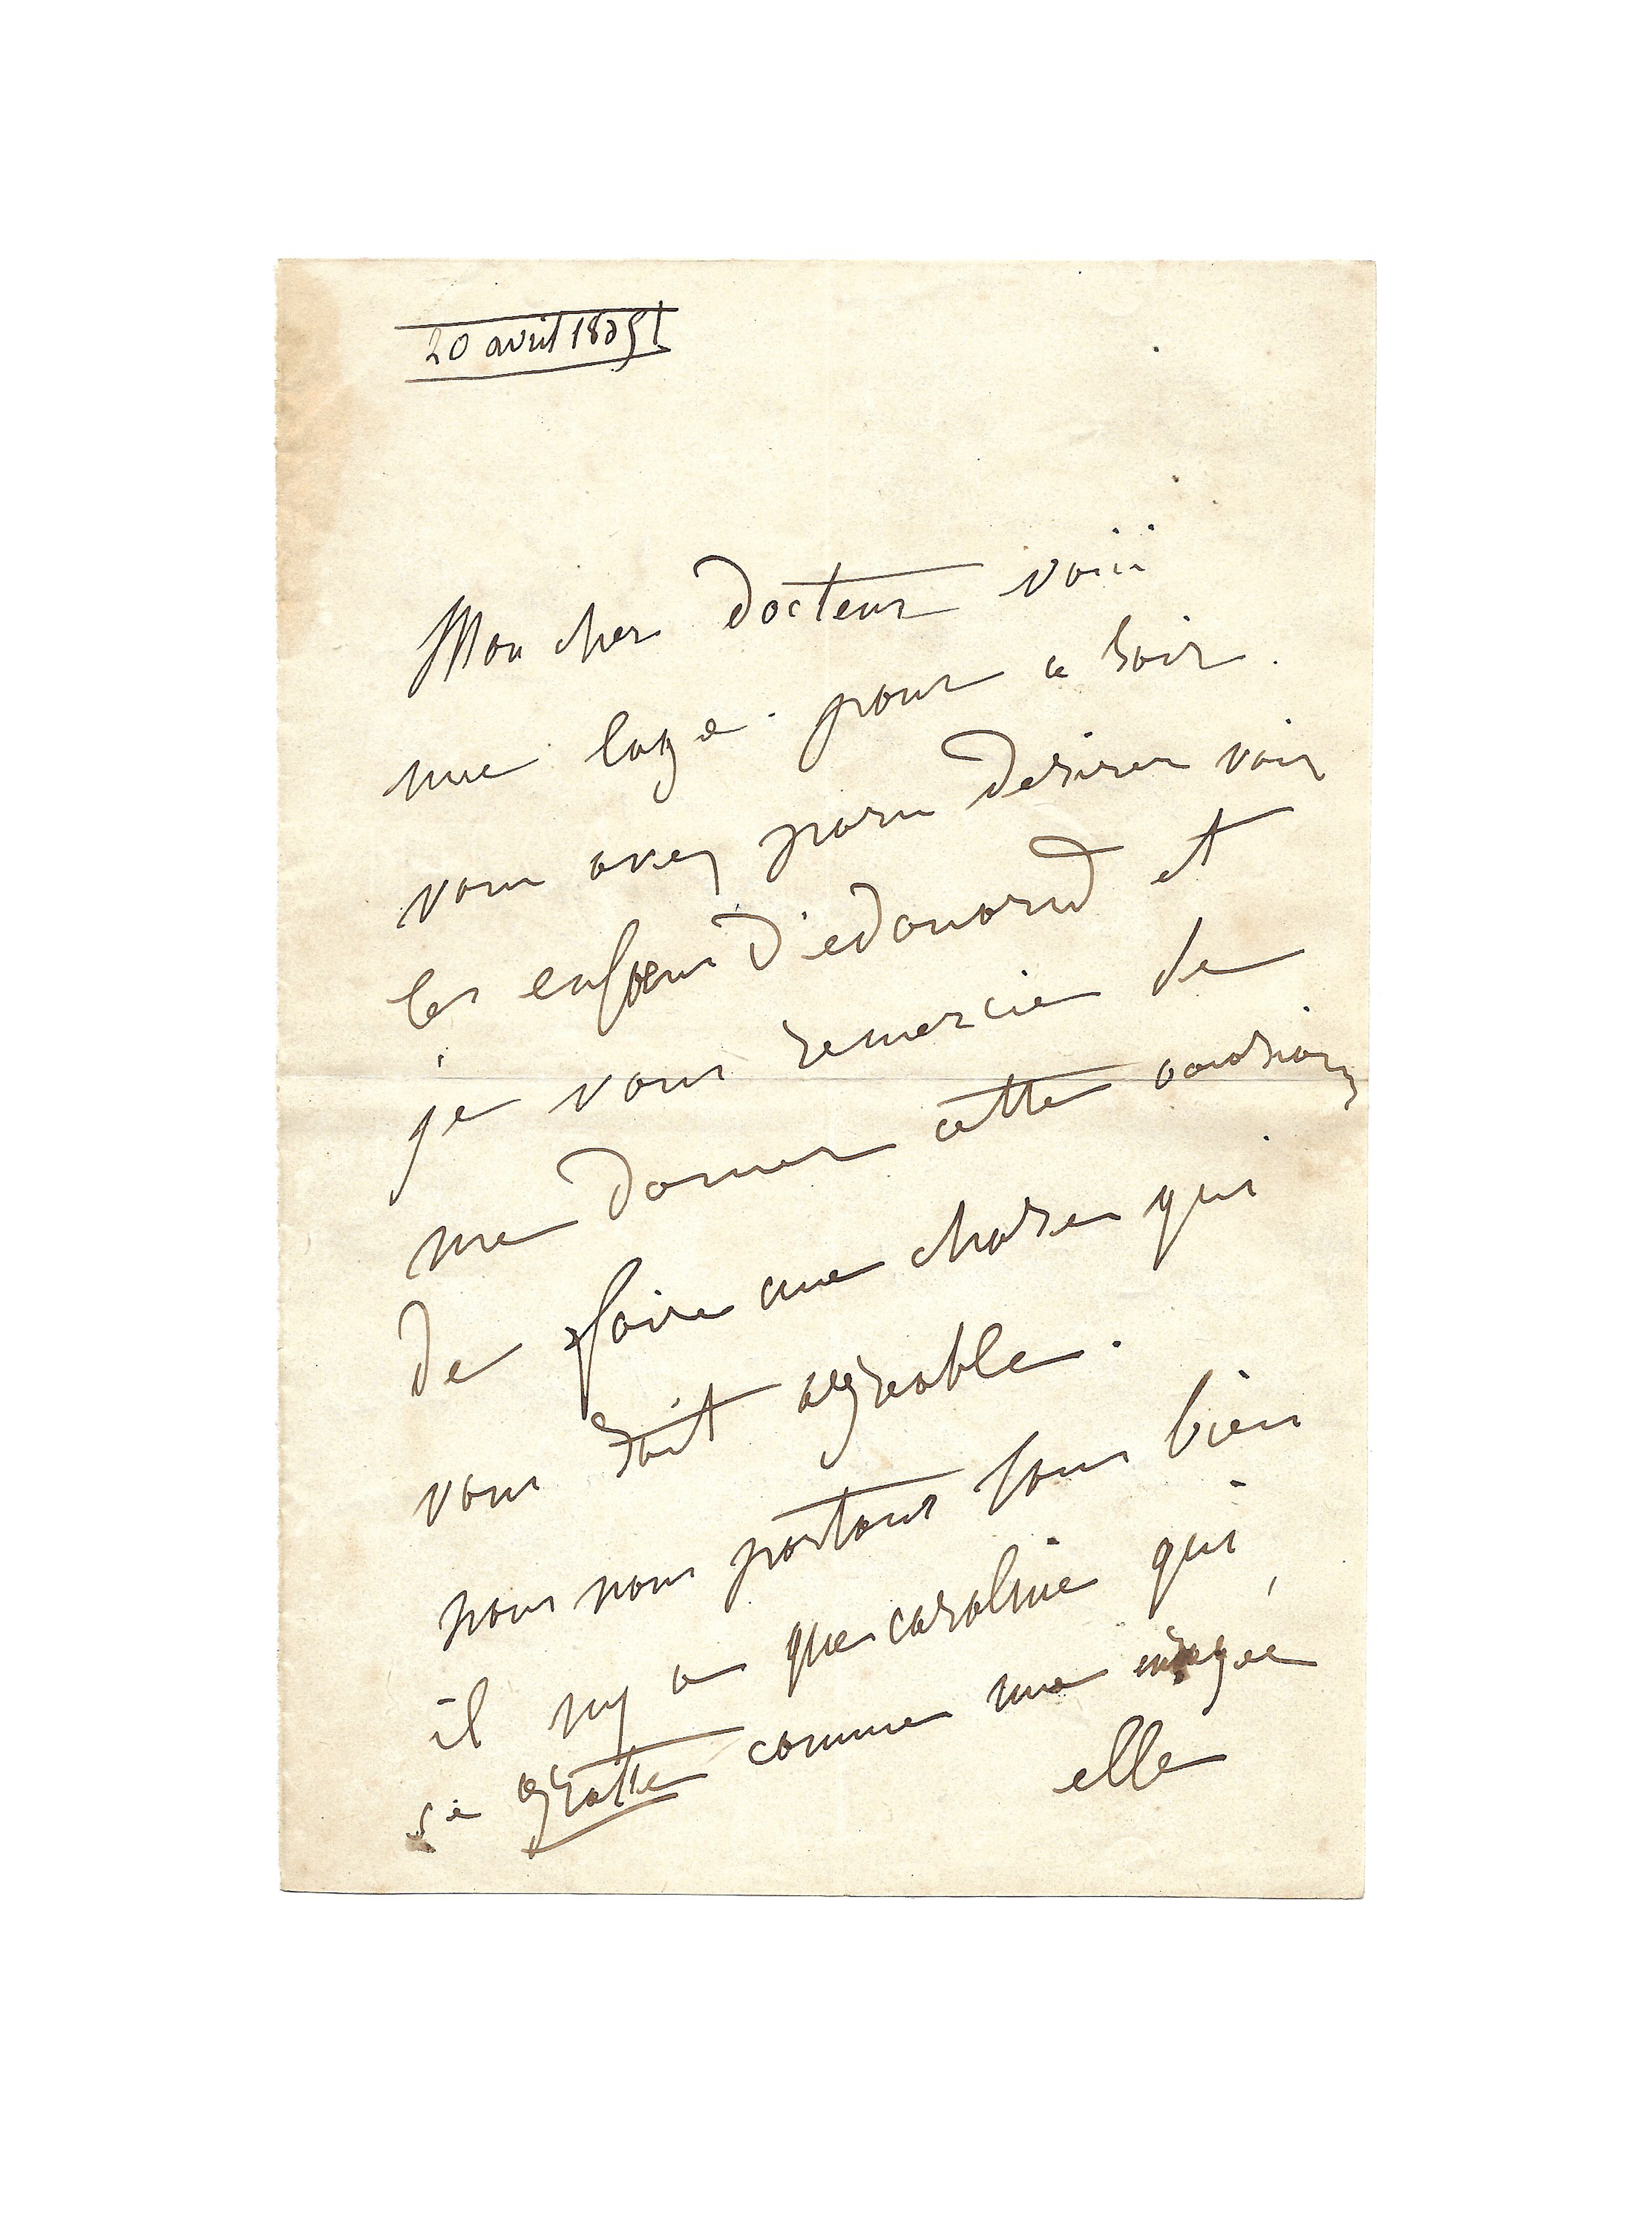 20 avril 1851
Mon cher docteur voici
une loge. pour ce soir.
vous avez paru desirer voir
les enfans d'edouard et
je vous remercie de
me donner cette occasion
de faire une chose qui
vous soit agreable.
nous nous portons tous bien
il ny a que caroline qui
se gratte comme une enragée
elle